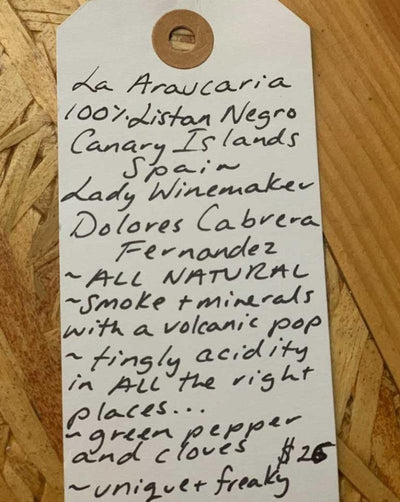 La Araucaria
100% Listan Negro
Canary Islands
Spain
Lady Winemaker
Dolores Cabrera
Fernandez
~ALL NATURAL
~Smoke + minerals
with a volcanic pop
~tingly acidity
in ALL the right
places...
~green pepper
and cloves $26
~unique + freaky